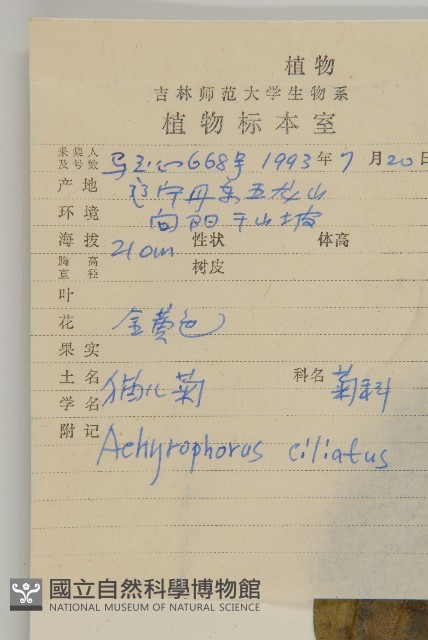 植物
吉林师范大学生物系
植物标本室
采集人及号数 668号 1993年7月20日
产地 辽宁丹东五龙山
环境 向阳干山坡
海拔 210m 性状 体高
胸高直径 树皮
叶
花 金黄色
果实
土名 猫儿菊 科名 菊科
学名
附记 Achyrophorus ciliatus
國立自然科學博物館
NATIONAL MUSEUM OF NATURAL SCIENCE